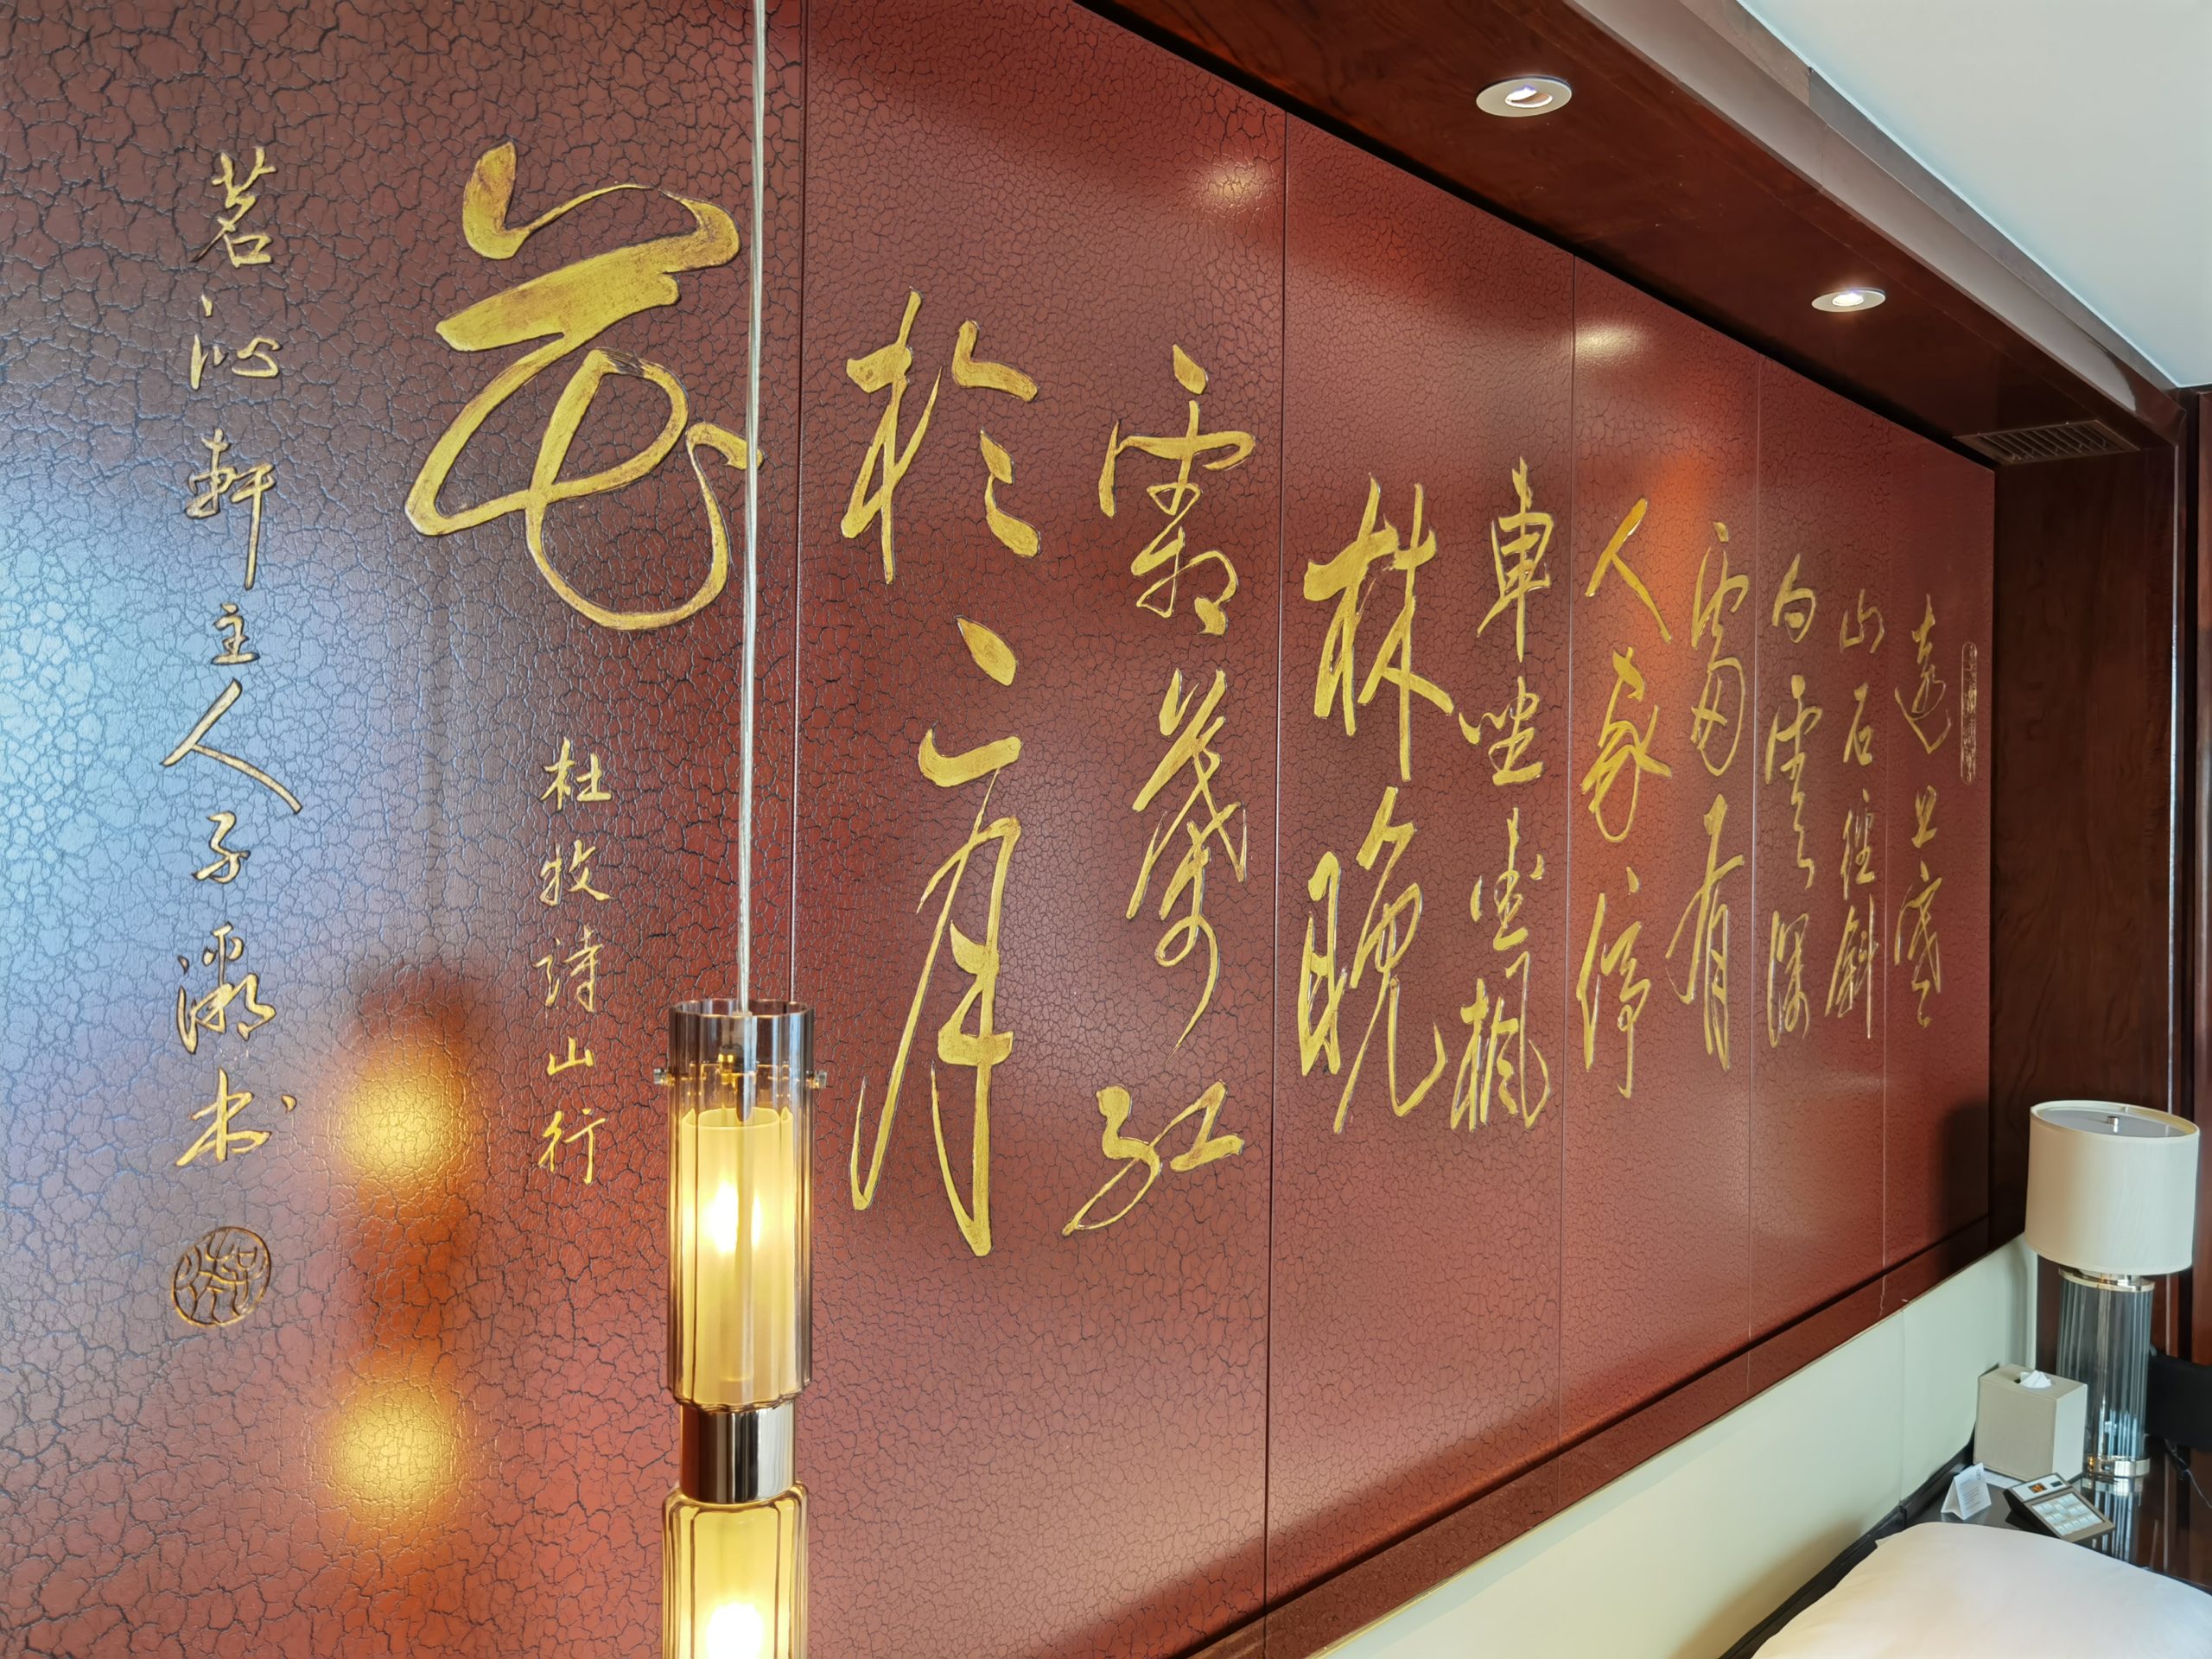 遠上寒
山石徑斜
白雲深
處有
人家停
車坐愛楓
林晚
霜葉紅
於二月
花
杜牧詩山行
茗沁軒主人子书